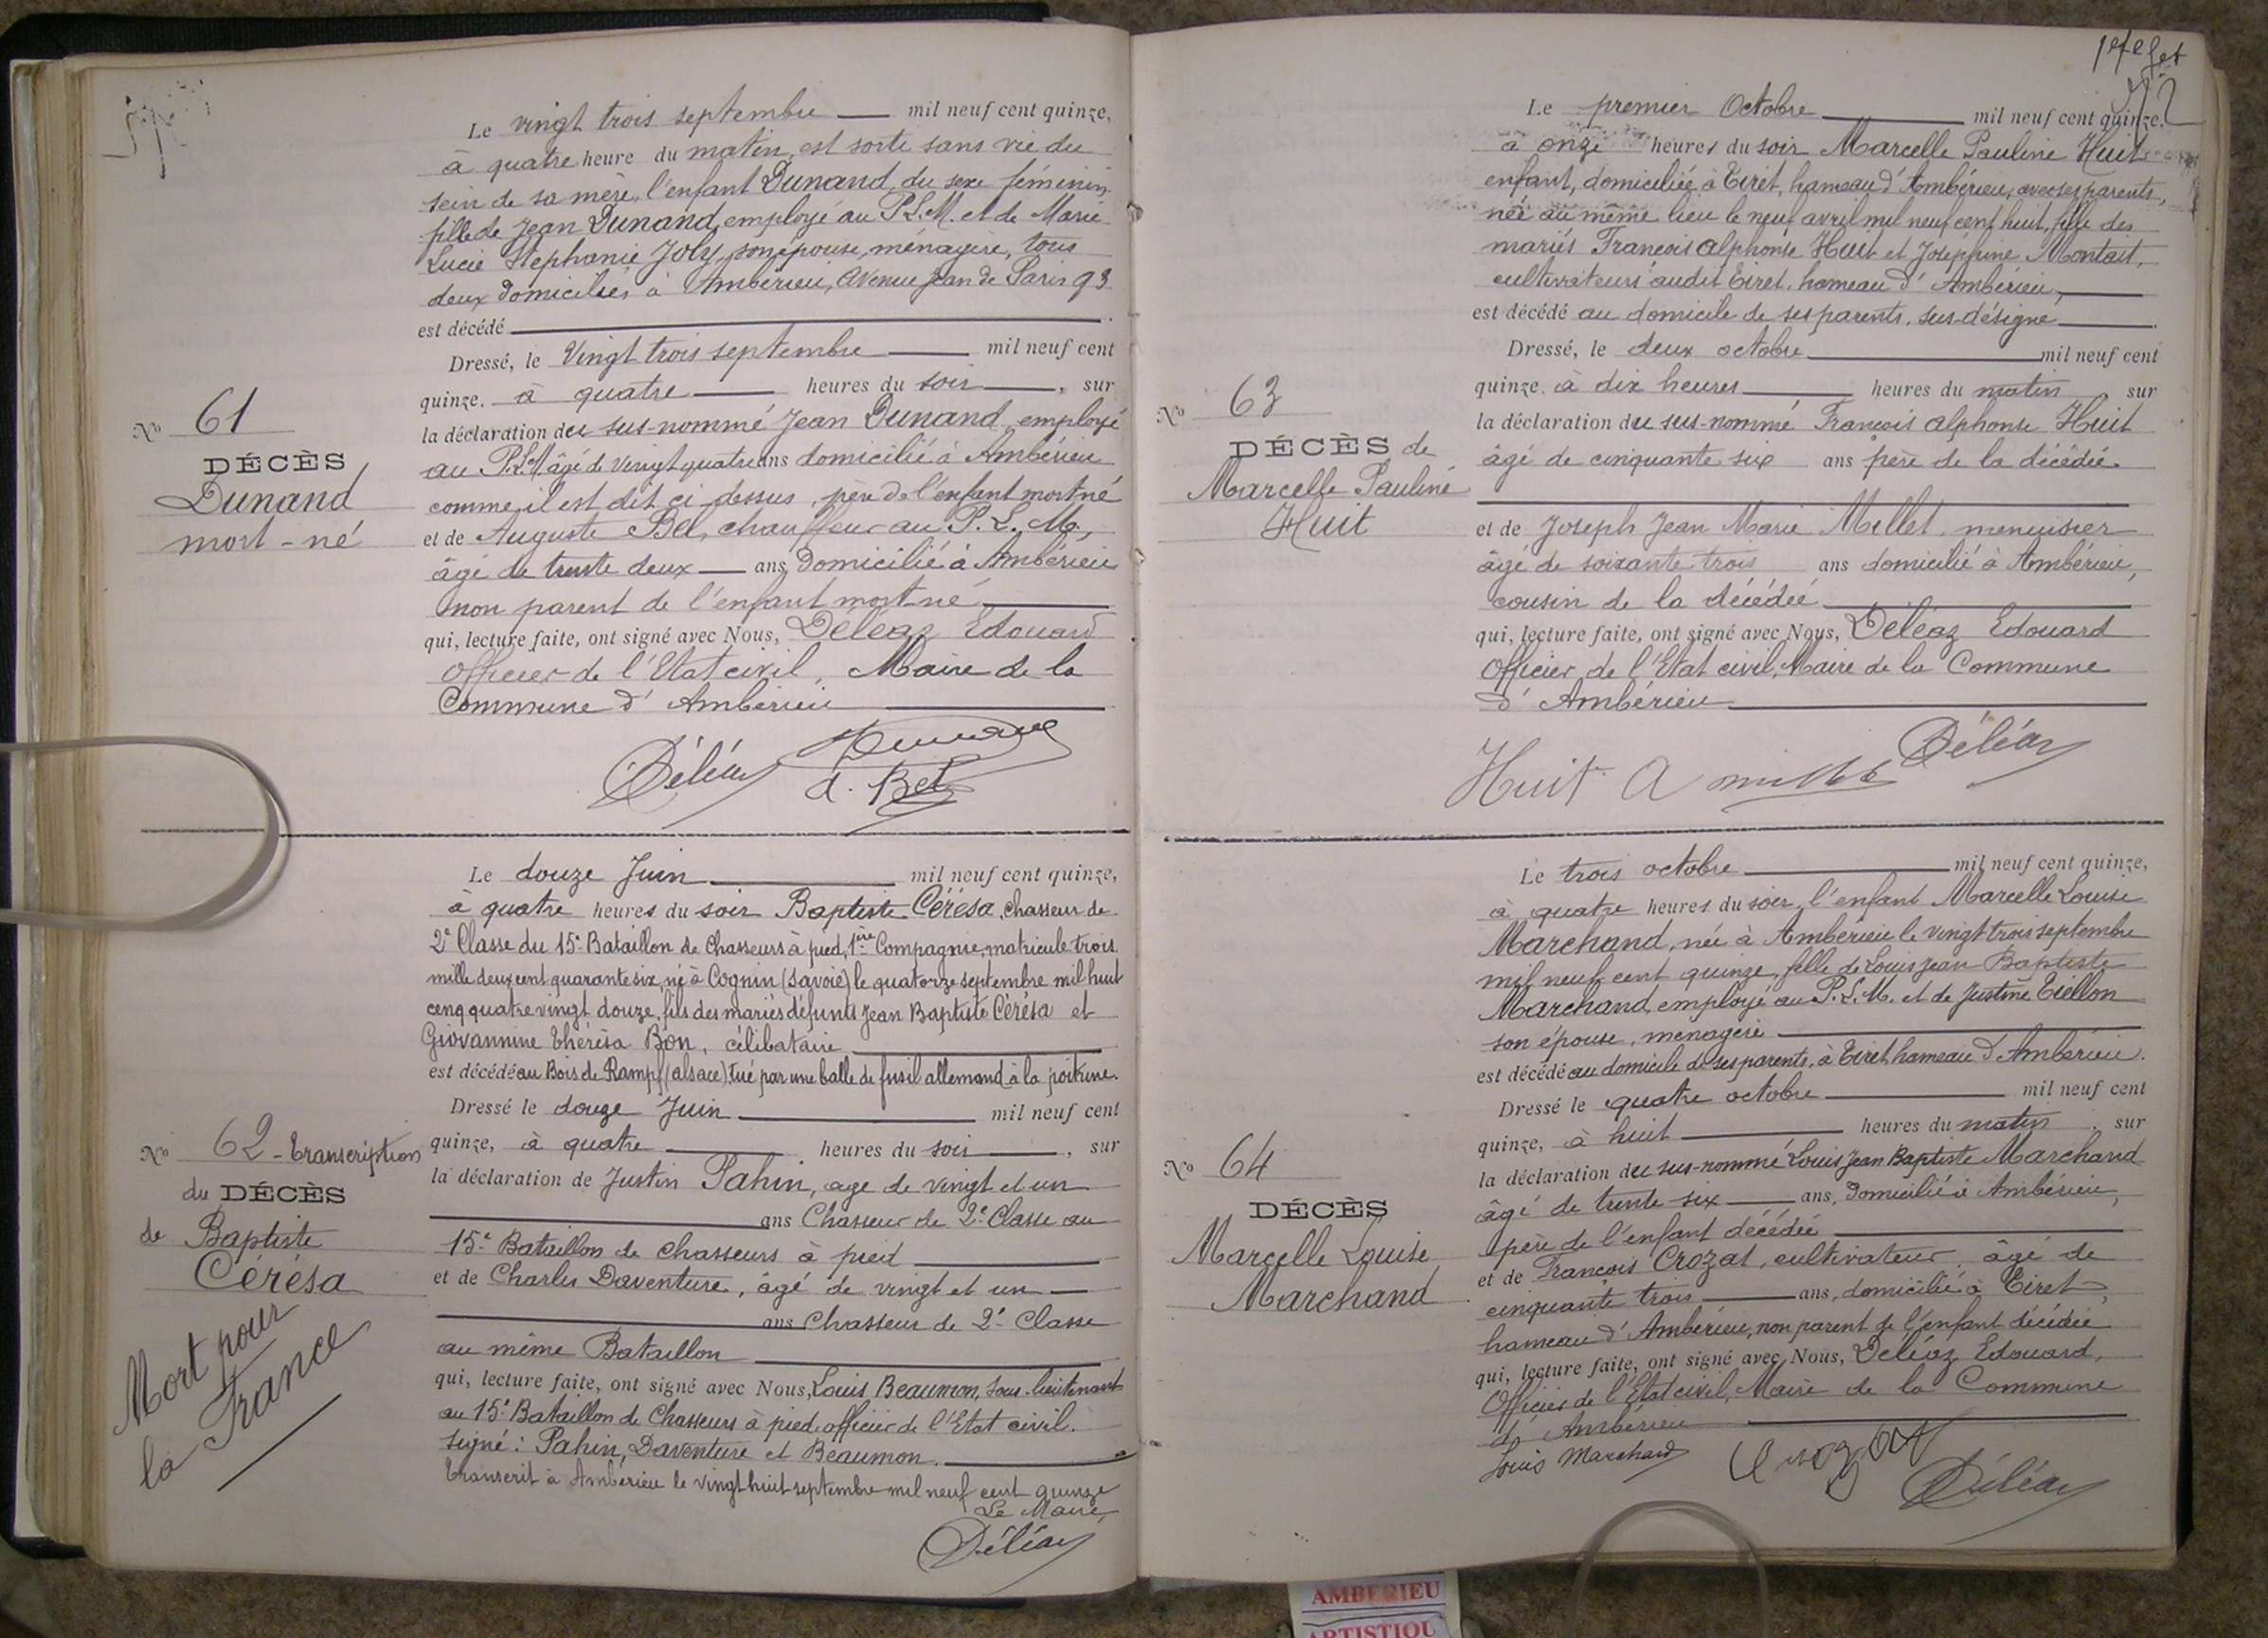 Le vingt trois septembre mil neuf cent quinze,
à quatre heure du matin, est sorti sans vie du
sein de sa mère, l'enfant Dunand, du sexe féminin
fille de Jean Dunand, employé au P.L.M. et de Marie
Lucie Stéphanie Joly, son épouse, ménagère, tous
deux domiciliés à Ambérieu, Avenue Jean de Paris 93
est décédé
Dressé, le Vingt trois septembre mil neuf cent
quinze, à quatre heures du soir, sur
la déclaration du sus-nommé Jean Dunand, employé
au P.L.M. âgé de vingt quatre ans domicilié à Ambérieu
comme il est dit ci dessus, père de l'enfant mort né
et de Auguste Bel, chauffeur au P.L.M.,
âgé de trente deux ans, domicilié à Ambérieu
non parent de l'enfant mort-né
qui, lecture faite, ont signé avec Nous, Déléaz Edouard
Officier de l'Etat civil, Maire de la
Commune d'Ambérieu
Déléaz Dunand
A. Bel
No 61
DÉCÈS
Dunand
mort-né
Le douze Juin mil neuf cent quinze,
à quatre heures du soir Baptiste Cérésa, chasseur de
2e Classe du 15e Bataillon de Chasseurs à pied, 1ère Compagnie, matricule trois
mille deux cent quarante six, né à Cognin (Savoie) le quatorze septembre mil huit
cenq quatre vingt douze, fils des mariés défunts Jean Baptiste Cérésa et
Giovannine Thérésa Bon, célibataire
est décédé au Bois de Rampf (alsace) Tué par une balle de fusil allemand à la poitrine.
Dressé le douze Juin mil neuf cent
quinze, à quatre heures du soir, sur
la déclaration de Justin Pahin, age de vingt et un
ans Chasseur de 2e Classe au
15e Bataillon de Chasseurs à pied
et de Charles Daventure, âgé de vingt et un
ans Chasseur de 2e Classe
au même Bataillon
qui, lecture faite, ont signé avec Nous, Louis Beaumon, sous-lieutenant
au 15e Bataillon de Chasseurs à pied, officier de l'Etat civil.
signé: Pahin, Daventure et Beaumon.
Transcrit à Ambérieu le vingt huit septembre mil neuf cent quinze
Le Maire,
Déléaz
No 62 - Transcription
du DÉCÈS
de Baptiste
Cérésa
Mort pour
la France
Le premier Octobre mil neuf cent quinze,
à onze heures du soir Marcelle Pauline Huit
enfant, domiciliée à Tiret, hameau d'Ambérieu, avec ses parents,
née au même lieu le neuf avril mil neuf cent huit, fille des
mariés François Alphonse Huit et Joséphine Montait,
cultivateurs audit Tiret, hameau d'Ambérieu,
est décédé au domicile de ses parents, sus-désigné
Dressé, le deux octobre mil neuf cent
quinze, à dix heures heures du matin sur
la déclaration du sus-nommé François Alphonse Huit
âgé de cinquante six ans père de la décédée
et de Joseph Jean Marie Millet, menuisier
âgé de soixante trois ans domicilié à Ambérieu,
cousin de la décédée
qui, lecture faite, ont signé avec Nous, Déléaz Edouard
Officier de l'Etat civil, Maire de la Commune
d'Ambérieu
Huit A Millet Déléaz
No 63
DÉCÈS de
Marcelle Pauline
Huit
Le trois octobre mil neuf cent quinze,
à quatre heures du soir, l'enfant Marcelle Louise
Marchand, née à Ambérieu le vingt trois septembre
mil neuf cent quinze, fille de Louis Jean Baptiste
Marchand, employé au P.L.M. et de Justine Tiellon
son épouse, ménagère
est décédé au domicile de ses parents, à Tiret, hameau d'Ambérieu.
Dressé le quatre octobre mil neuf cent
quinze, à huit heures du matin, sur
la déclaration du sus-nommé Louis Jean Baptiste Marchand
âgé de trente six ans, domicilié à Ambérieu,
père de l'enfant décédée
et de François Crozat, cultivateur, âgé de
cinquante trois ans, domicilié à Tiret,
hameau d'Ambérieu, non parent de l'enfant décédée
qui, lecture faite, ont signé avec Nous, Déléaz Edouard,
Officier de l'Etat civil, Maire de la Commune
d'Ambérieu
Louis Marchand Crozat Déléaz
No 64
DÉCÈS
Marcelle Louise
Marchand
AMBERIEU
ARTISTIQU